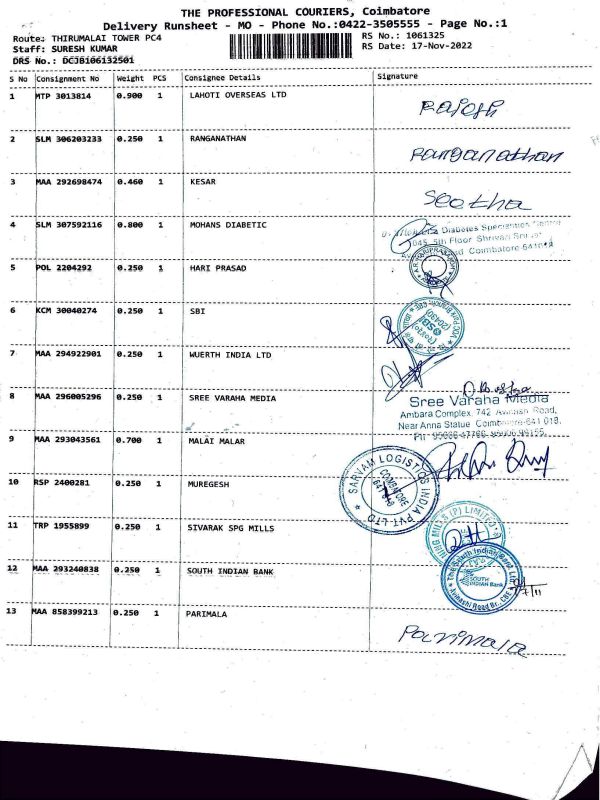 THE PROFESSIONAL COURIERS, Coimbatore
Delivery Runsheet - MO - Phone No.:0422-3505555 - Page No.:1
Route: THIRUMALAI TOWER PC4
RS No.: 1061325
Staff: SURESH KUMAR
RS Date: 17-Nov-2022
DRS No.: DCJB106132501
S No Consignment No Weight PCS Consignee Details Signature
1 MTP 3013814 0.900 1 LAHOTI OVERSEAS LTD Rajesh
2 SLM 306203233 0.250 1 RANGANATHAN Ranganathan
3 MAA 292698474 0.460 1 KESAR Seetha
4 SLM 307592116 0.800 1 MOHANS DIABETIC
Diabetes Specialities Centre
5th Floor Shrivari
Coimbatore
5 POL 2204292 0.250 1 HARI PRASAD
6 KCM 30040274 0.250 1 SBI
SBI
7 MAA 294922901 0.250 1 WUERTH INDIA LTD
8 MAA 296005296 0.250 1 SREE VARAHA MEDIA
Sree Varaha Media
Ambara Complex, 742 Avinashi Road,
Near Anna Statue Coimbatore-641 018.
9 MAA 293043561 0.700 1 MALAI MALAR
10 RSP 2400281 0.250 1 MUREGESH
SARVAM LOGISTICS INDIA PVT LTD
COIMBATORE
11 TRP 1955899 0.250 1 SIVARAK SPG MILLS
MILLS (P) LIMITED
12 MAA 293240838 0.250 1 SOUTH INDIAN BANK
The South Indian Bank Ltd
SOUTH
INDIAN Bank
Avinashi Road Br., CBE
13 MAA 858399213 0.250 1 PARIMALA Parimala